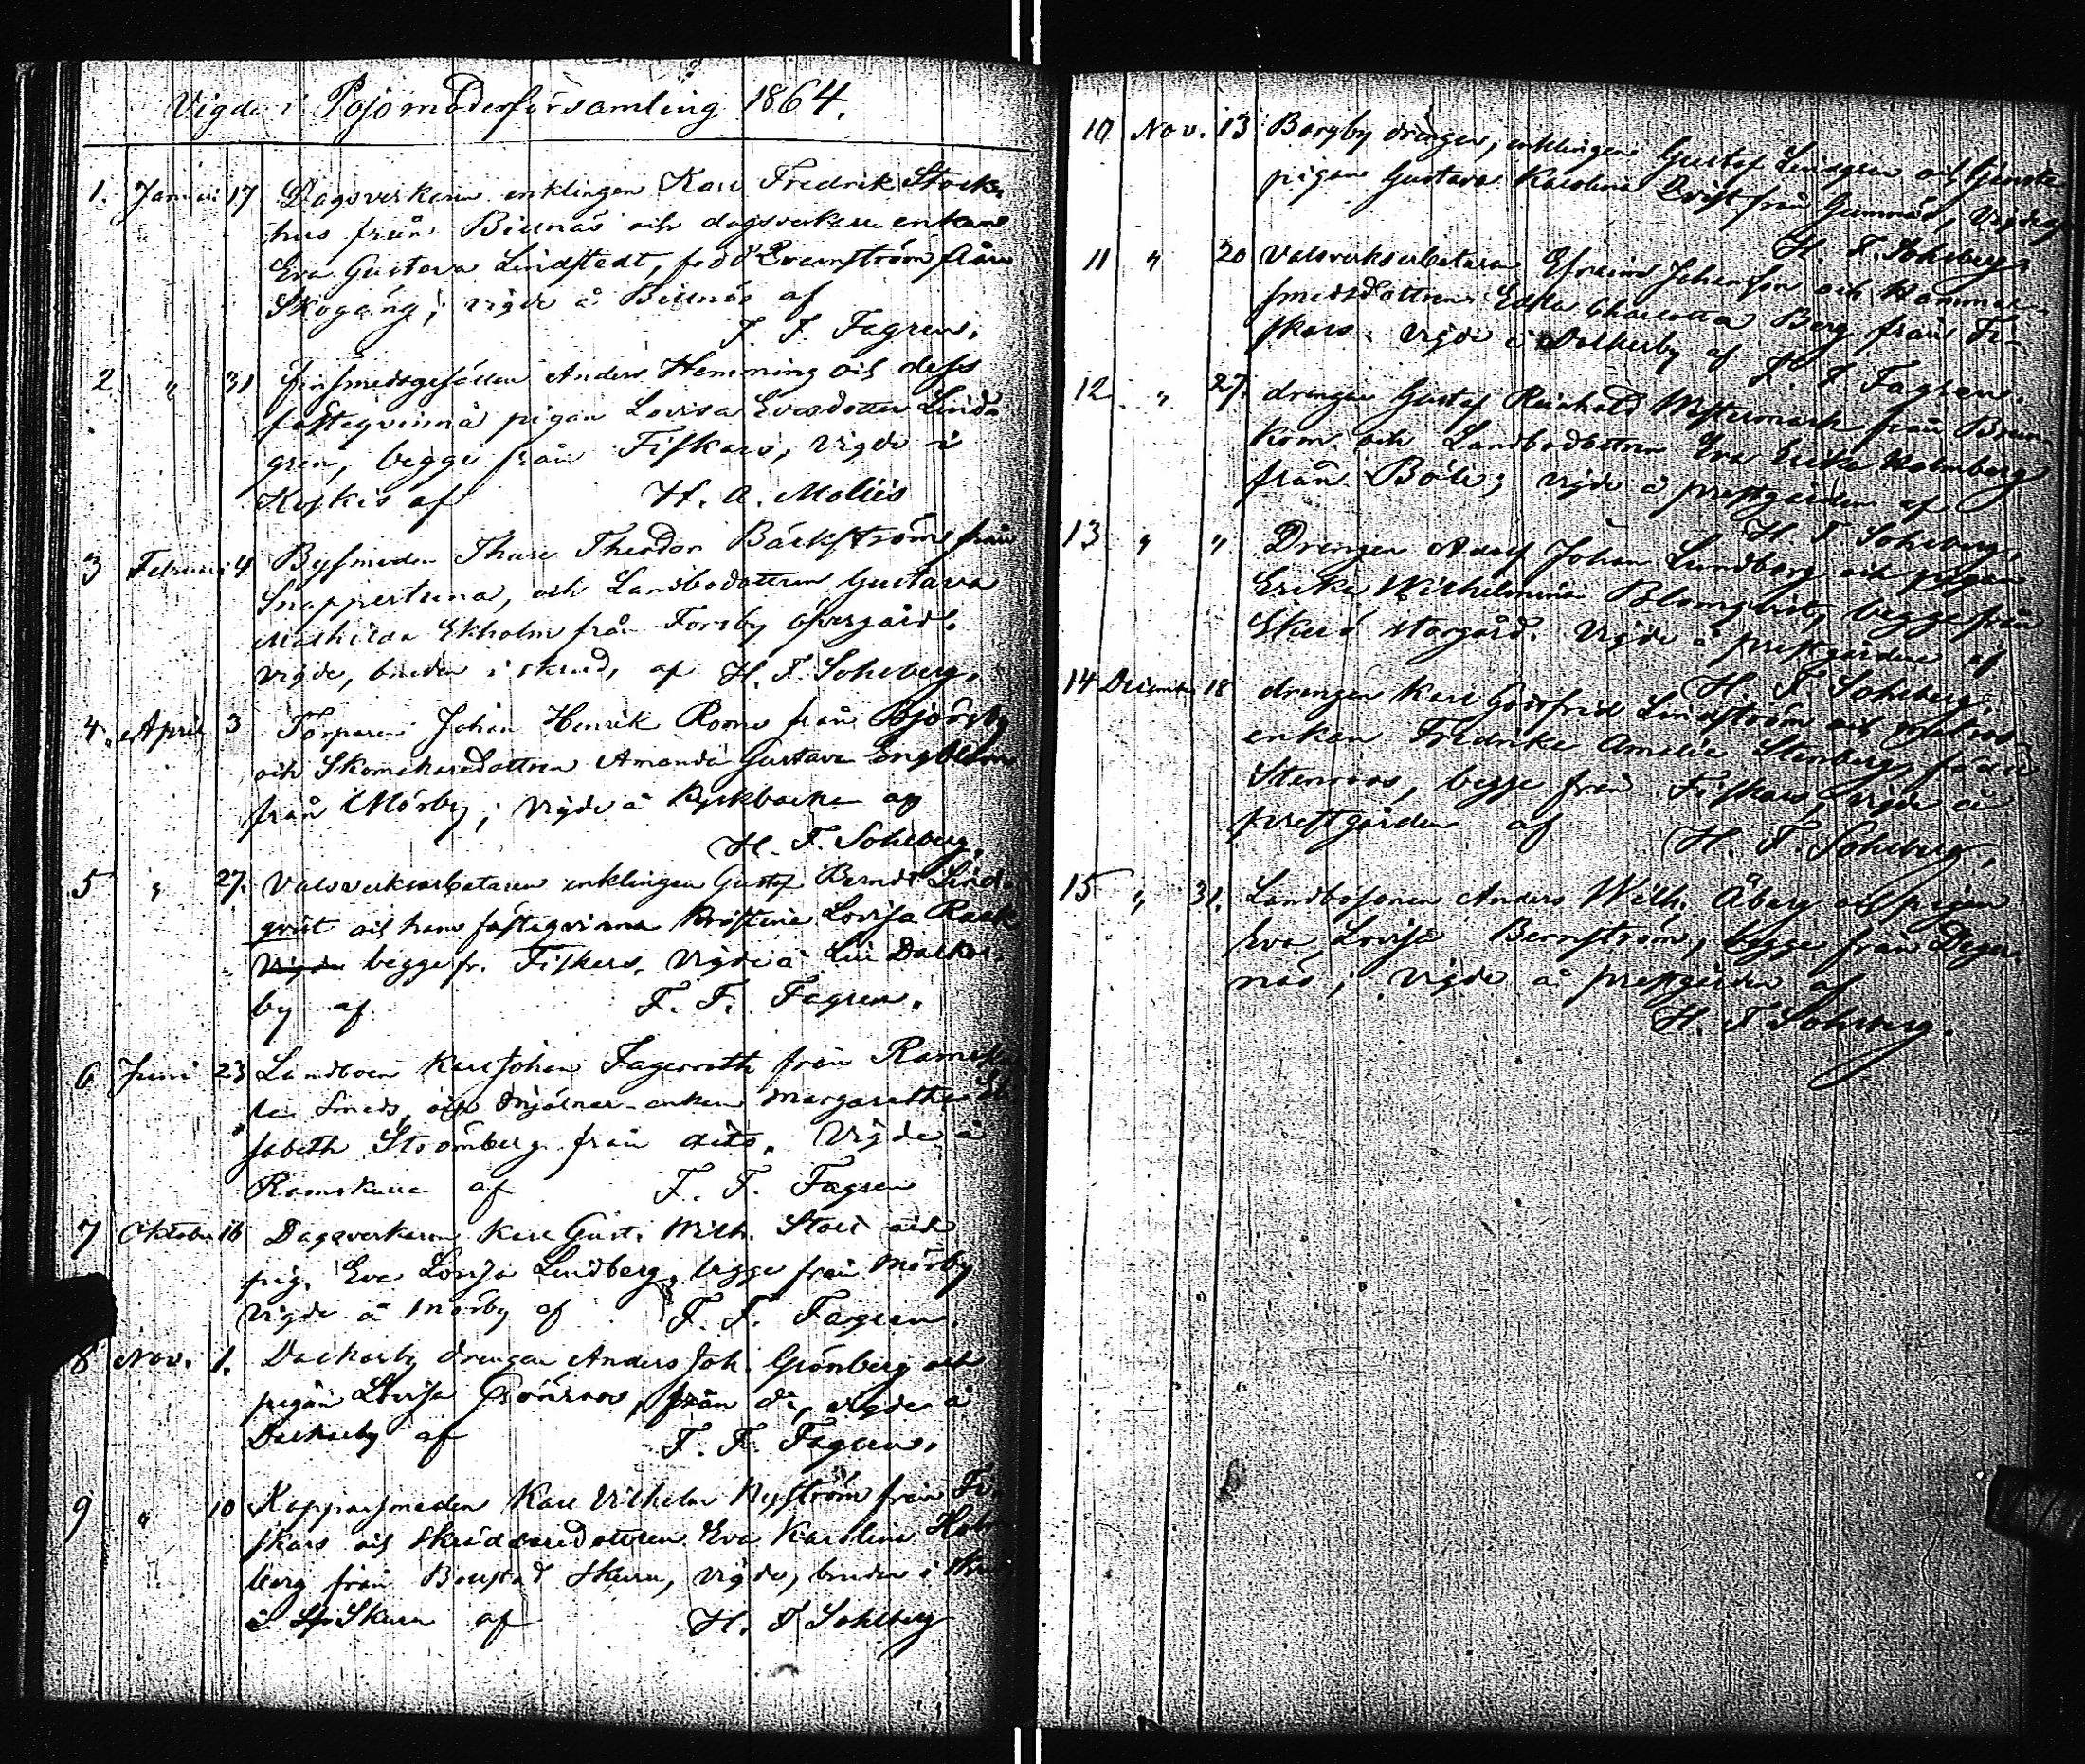 Vigde i Pojo moderförsamling 1864.
1. Januari 17 Dagsverkaren enklingen Karl Fredrik Stock-
hus från Billnäs och dagsverkare enkan
Eva Gustava Lindstedt, född Qvarnström från
Skogäng; vigde å Billnäs af
F. F. Fagren.
2. " 31 finsmedsgesällen Anders Hemming och dess
fästeqvinna pigan Lovisa Evasdotter Lind-
gren, begge från Fiskars, vigde i
Koskis af H. A. Moliis
3 Februari 4. Bysmeden Thure Theodor Bäckström från
Snappertuna, och Landbodottren Gustava
Mathilda Ekholm från Forsby öfvergård.
vigde, bruden i skrud, af H. F. Sohlberg.
4. April 3 Torparen Johan Henrik Roos från Björsby
och Skomakaredottren Amanda Gustava Engblom
från Mörby; vigde å Kyrkbacken af
H. F. Sohlberg.
5 " 27. Valsverksarbetaren enklingen Gustaf Berndt Lind-
qvist och hans fästeqvinna Kristina Lovisa Raak
Vigde begge fr. Fiskars. Vigde å Dalkar-
by af F. F. Fagren.
6 Juni 23 Landboen Karl Johan Fagerroth från Ramsku-
la Smeds, och Mjölnare-enkan Margaretha Eli-
sabeth Strömberg från dito. Vigde å
Ramskulla af F. F. Fagren
7 Oktober 16 Dagsverkaren Karl Gust. Wilh. Stolt och
pig. Eva Lovisa Lindberg, begge från Mörby
vigde å Mörby af F. F. Fagren.
8 Nov. 1. Dalkarby drengen Anders Joh. Grönberg och
pigan Lovisa Grönroos, från do, vigde å
Dalkarby af F. F. Fagren.
9 " 10 Kopparsmeden Karl Vilhelm Nyström från Fi-
skars och Skräddaredottren Eva Karolina Holm-
berg från Bollstad Skuru, vigde, bruden i skrud
å Skuru af H. F. Sohlberg
10 Nov. 13 Borgby drengen, enklingen Gustaf Lindgren och tjenste-
pigan Gustava Karolina Qvist från Gumnäs, vigde af
H. F. Sohlberg.
11 " 20 Valsverksarbetaren Efraim Johansson och Hammar-
smedsdottren Edla Charlotta Berg från Fi-
skars. Vigde å Dalkarby af F. F. Fagren.
12 " 27. drengen Gustaf Reinhold Westermark från Brun-
kom och Landbodottren Eva Erika Holmberg
från Böle; vigde å prestgården af
H. F. Sohlberg.
13 " " Drengen Adolf Johan Lundberg och pigan
Erika Wilhelmina Blomqvist, begge från
Ekerö storgård. Vigde å prestgården af
H. F. Sohlberg.
14 December 18 drengen Karl Gottfrid Lindström och
enkan Fredrika Amalia Stenberg, född
Stenroos, begge från Fiskars, vigde å
prestgården af H. F. Sohlberg.
15 " 31. Landbosonen Anders Wilh. Åberg och pigan
Eva Lovisa Bernström, begge från Deger-
näs; vigde å prestgården af
H. F. Sohlberg.